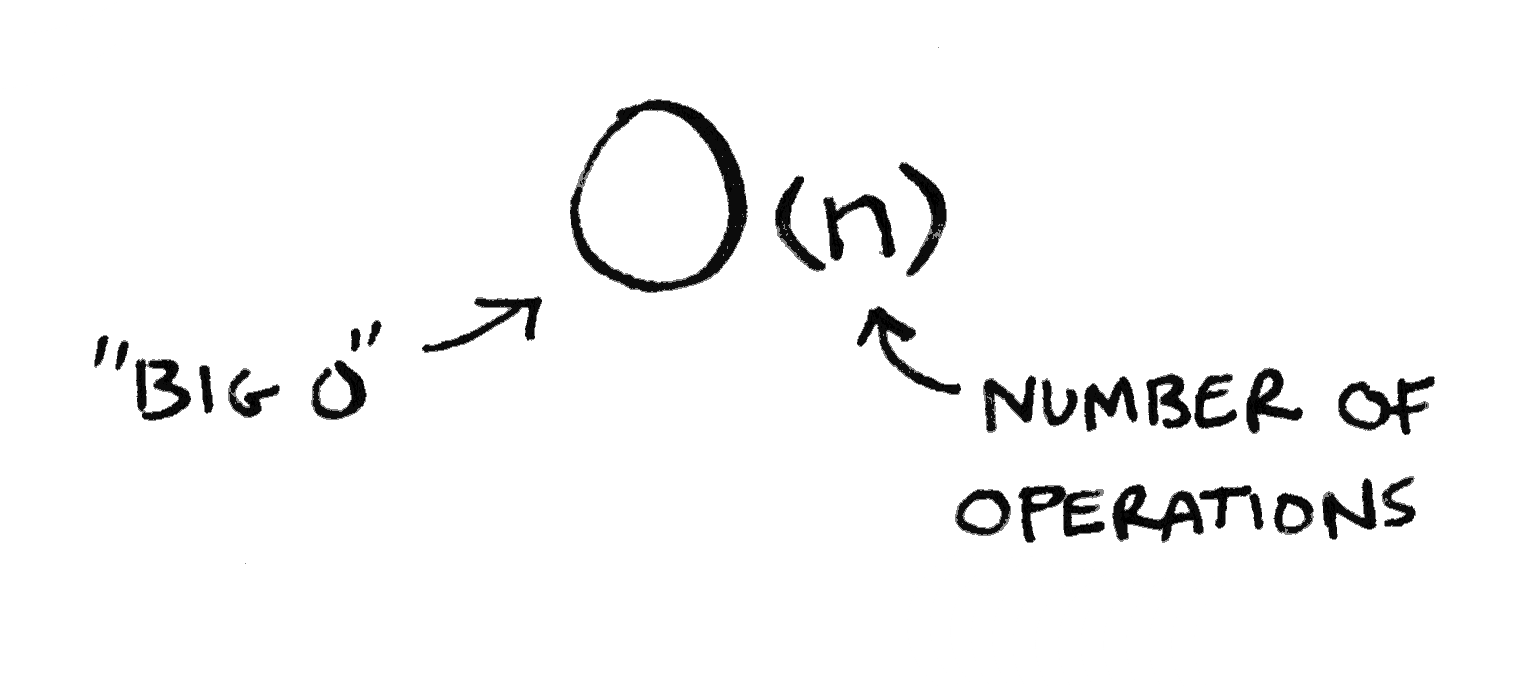 O(n)
"BIG O"
NUMBER OF
OPERATIONS